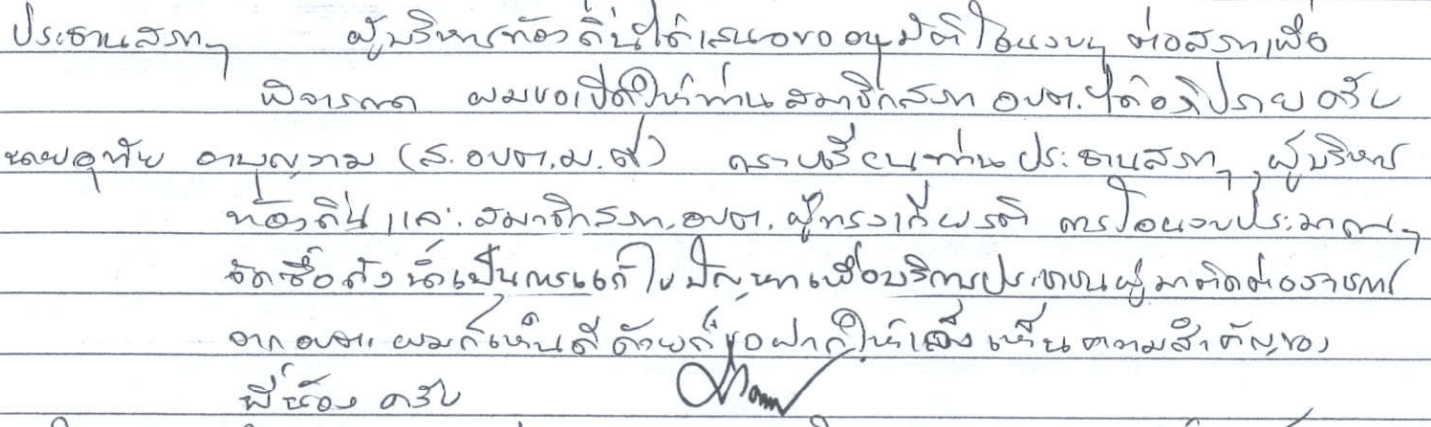 ประธานสภาฯ ผู้บริหารท้องถิ่นได้เสนอขออนุมัติโอนงบฯ ต่อสภาเพื่อ
พิจารณา ผมขอเปิดให้ท่านสมาชิกสภา อบต.ได้อภิปราย ครับ
นายอุทัย (ส.อบต.ม.๙) กราบเรียนท่านประธานสภาฯ ผู้บริหาร
ท้องถิ่น และ สมาชิกสภา.อบต. ผู้ทรงเกียรติ การโอนงบประมาณฯ
จัดซื้อครั้งนี้เป็นการแก้ไขปัญหาเพื่อบริการประชาชนผู้มาติดต่อราชการ
จาก อบต. ผมก็เห็นดีด้วยก็ขอฝากให้เล็งเห็นความสำคัญของ
พี่น้อง ครับ